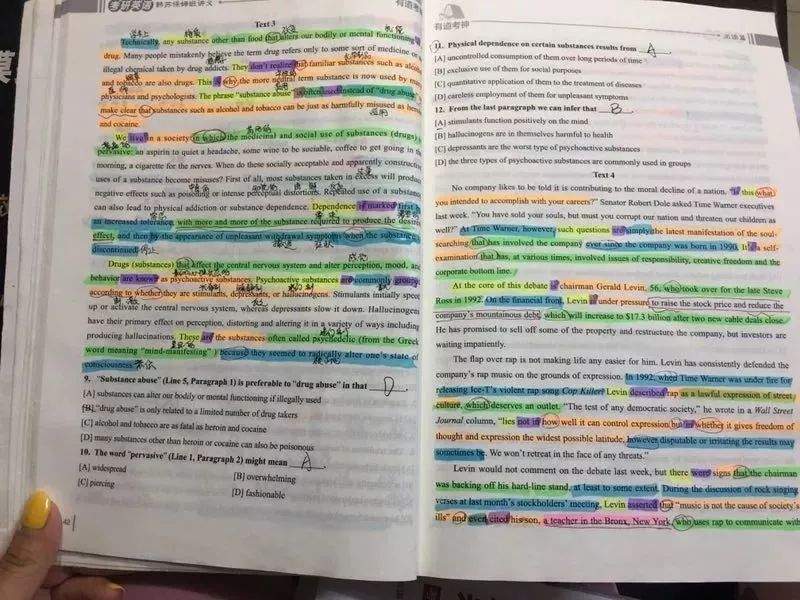 考研英语
Text 3
Technically, any substance other than food that alters our bodily or mental functioning
drug. Many people mistakenly believe the term drug refers only to some sort of medicine or
illegal chemical taken by drug addicts. They don't realize that familiar substances such as alcoh
and tobacco are also drugs. This is why the more neutral term substance is now used by m
physicians and psychologists. The phrase "substance abuse" is often used instead of "drug abuse"
make clear that substances such as alcohol and tobacco can be just as harmfully misused as hero
and cocaine.
We live in a society in which the medicinal and social use of substances (drugs)
pervasive: an aspirin to quiet a headache, some wine to be sociable, coffee to get going in th
morning, a cigarette for the nerves. When do these socially acceptable and apparently constructiv
uses of a substance become misuses? First of all, most substances taken in excess will produce
negative effects such as poisoning or intense perceptual distortions. Repeated use of a substance
can also lead to physical addiction or substance dependence. Dependence is marked first by
an increased tolerance, with more and more of the substance required to produce the desired
effect, and then by the appearance of unpleasant withdrawal symptoms when the substance
discontinued.
Drugs (substances) that affect the central nervous system and alter perception, mood, an
behavior are known as psychoactive substances. Psychoactive substances are commonly groupe
according to whether they are stimulants, depressants, or hallucinogens. Stimulants initially speed
up or activate the central nervous system, whereas depressants slow it down. Hallucinogens
have their primary effect on perception, distorting and altering it in a variety of ways including
producing hallucinations. These are the substances often called psychedelic (from the Greek
word meaning "mind-manifesting") because they seemed to radically alter one's state of
consciousness.
9. "Substance abuse" (Line 5, Paragraph 1) is preferable to "drug abuse" in that D
[A] substances can alter our bodily or mental functioning if illegally used
[B] "drug abuse" is only related to a limited number of drug takers
[C] alcohol and tobacco are as fatal as heroin and cocaine
[D] many substances other than heroin or cocaine can also be poisonous
10. The word "pervasive" (Line 1, Paragraph 2) might mean A
[A] widespread [B] overwhelming
[C] piercing [D] fashionable
有道考神
11. Physical dependence on certain substances results from A
[A] uncontrolled consumption of them over long periods of time
[B] exclusive use of them for social purposes
[C] quantitative application of them to the treatment of diseases
[D] careless employment of them for unpleasant symptoms
12. From the last paragraph we can infer that B
[A] stimulants function positively on the mind
[B] hallucinogens are in themselves harmful to health
[C] depressants are the worst type of psychoactive substances
[D] the three types of psychoactive substances are commonly used in groups
Text 4
No company likes to be told it is contributing to the moral decline of a nation. "Is this what
you intended to accomplish with your careers?" Senator Robert Dole asked Time Warner executives
last week. "You have sold your souls, but must you corrupt our nation and threaten our children as
well?" At Time Warner, however, such questions are simply the latest manifestation of the soul-
searching that has involved the company ever since the company was born in 1990. It's a self-
examination that has, at various times, involved issues of responsibility, creative freedom and the
corporate bottom line.
At the core of this debate is chairman Gerald Levin, 56, who took over for the late Steve
Ross in 1992. On the financial front, Levin is under pressure to raise the stock price and reduce the
company's mountainous debt, which will increase to $17.3 billion after two new cable deals close.
He has promised to sell off some of the property and restructure the company, but investors are
waiting impatiently.
The flap over rap is not making life any easier for him. Levin has consistently defended the
company's rap music on the grounds of expression. In 1992, when Time Warner was under fire for
releasing Ice-T's violent rap song Cop Killer, Levin described rap as a lawful expression of street
culture, which deserves an outlet. "The test of any democratic society," he wrote in a Wall Street
Journal column, "lies not in how well it can control expression but in whether it gives freedom of
thought and expression the widest possible latitude, however disputable or irritating the results may
sometimes be. We won't retreat in the face of any threats."
Levin would not comment on the debate last week, but there were signs that the chairman
was backing off his hard-line stand, at least to some extent. During the discussion of rock singing
verses at last month's stockholders' meeting, Levin asserted that "music is not the cause of society's
ills" and even cited his son, a teacher in the Bronx, New York, who uses rap to communicate with